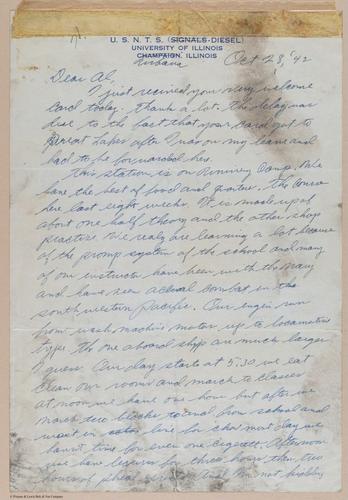 U. S. N. T. S. (SIGNALS-DIESEL)
UNIVERSITY OF ILLINOIS
CHAMPAIGN, ILLINOIS
Urbana
Oct 28, '42
Dear Al,
I just received your very welcome
card today. Thank a lot. the delay was
due to the fact that your card got to
Great Lakes after I was on my leave and
had to be forwarded here.
This station is on Running Camp. We
have the best of food and quarters. the course
here last eight weeks. It is made up of
about one half theory and the other shop
practice. We realy are learning a lot because
of the system of the school and many
of our instructor have been with the Navy
and have seen actual combat in the
south western Pacific. Our engin run
from wash machine motor up to locomotive
type. the one aboard ships are much larger
I guess. Our day starts at 5:30 we eat
clean our rooms and march to classes
at noon we have one hour but after we
march two blocks to and from school and
wait in line for chow most day we
haven't time for even one cigarette. Afternoon
we have for three hours then two
hours of not